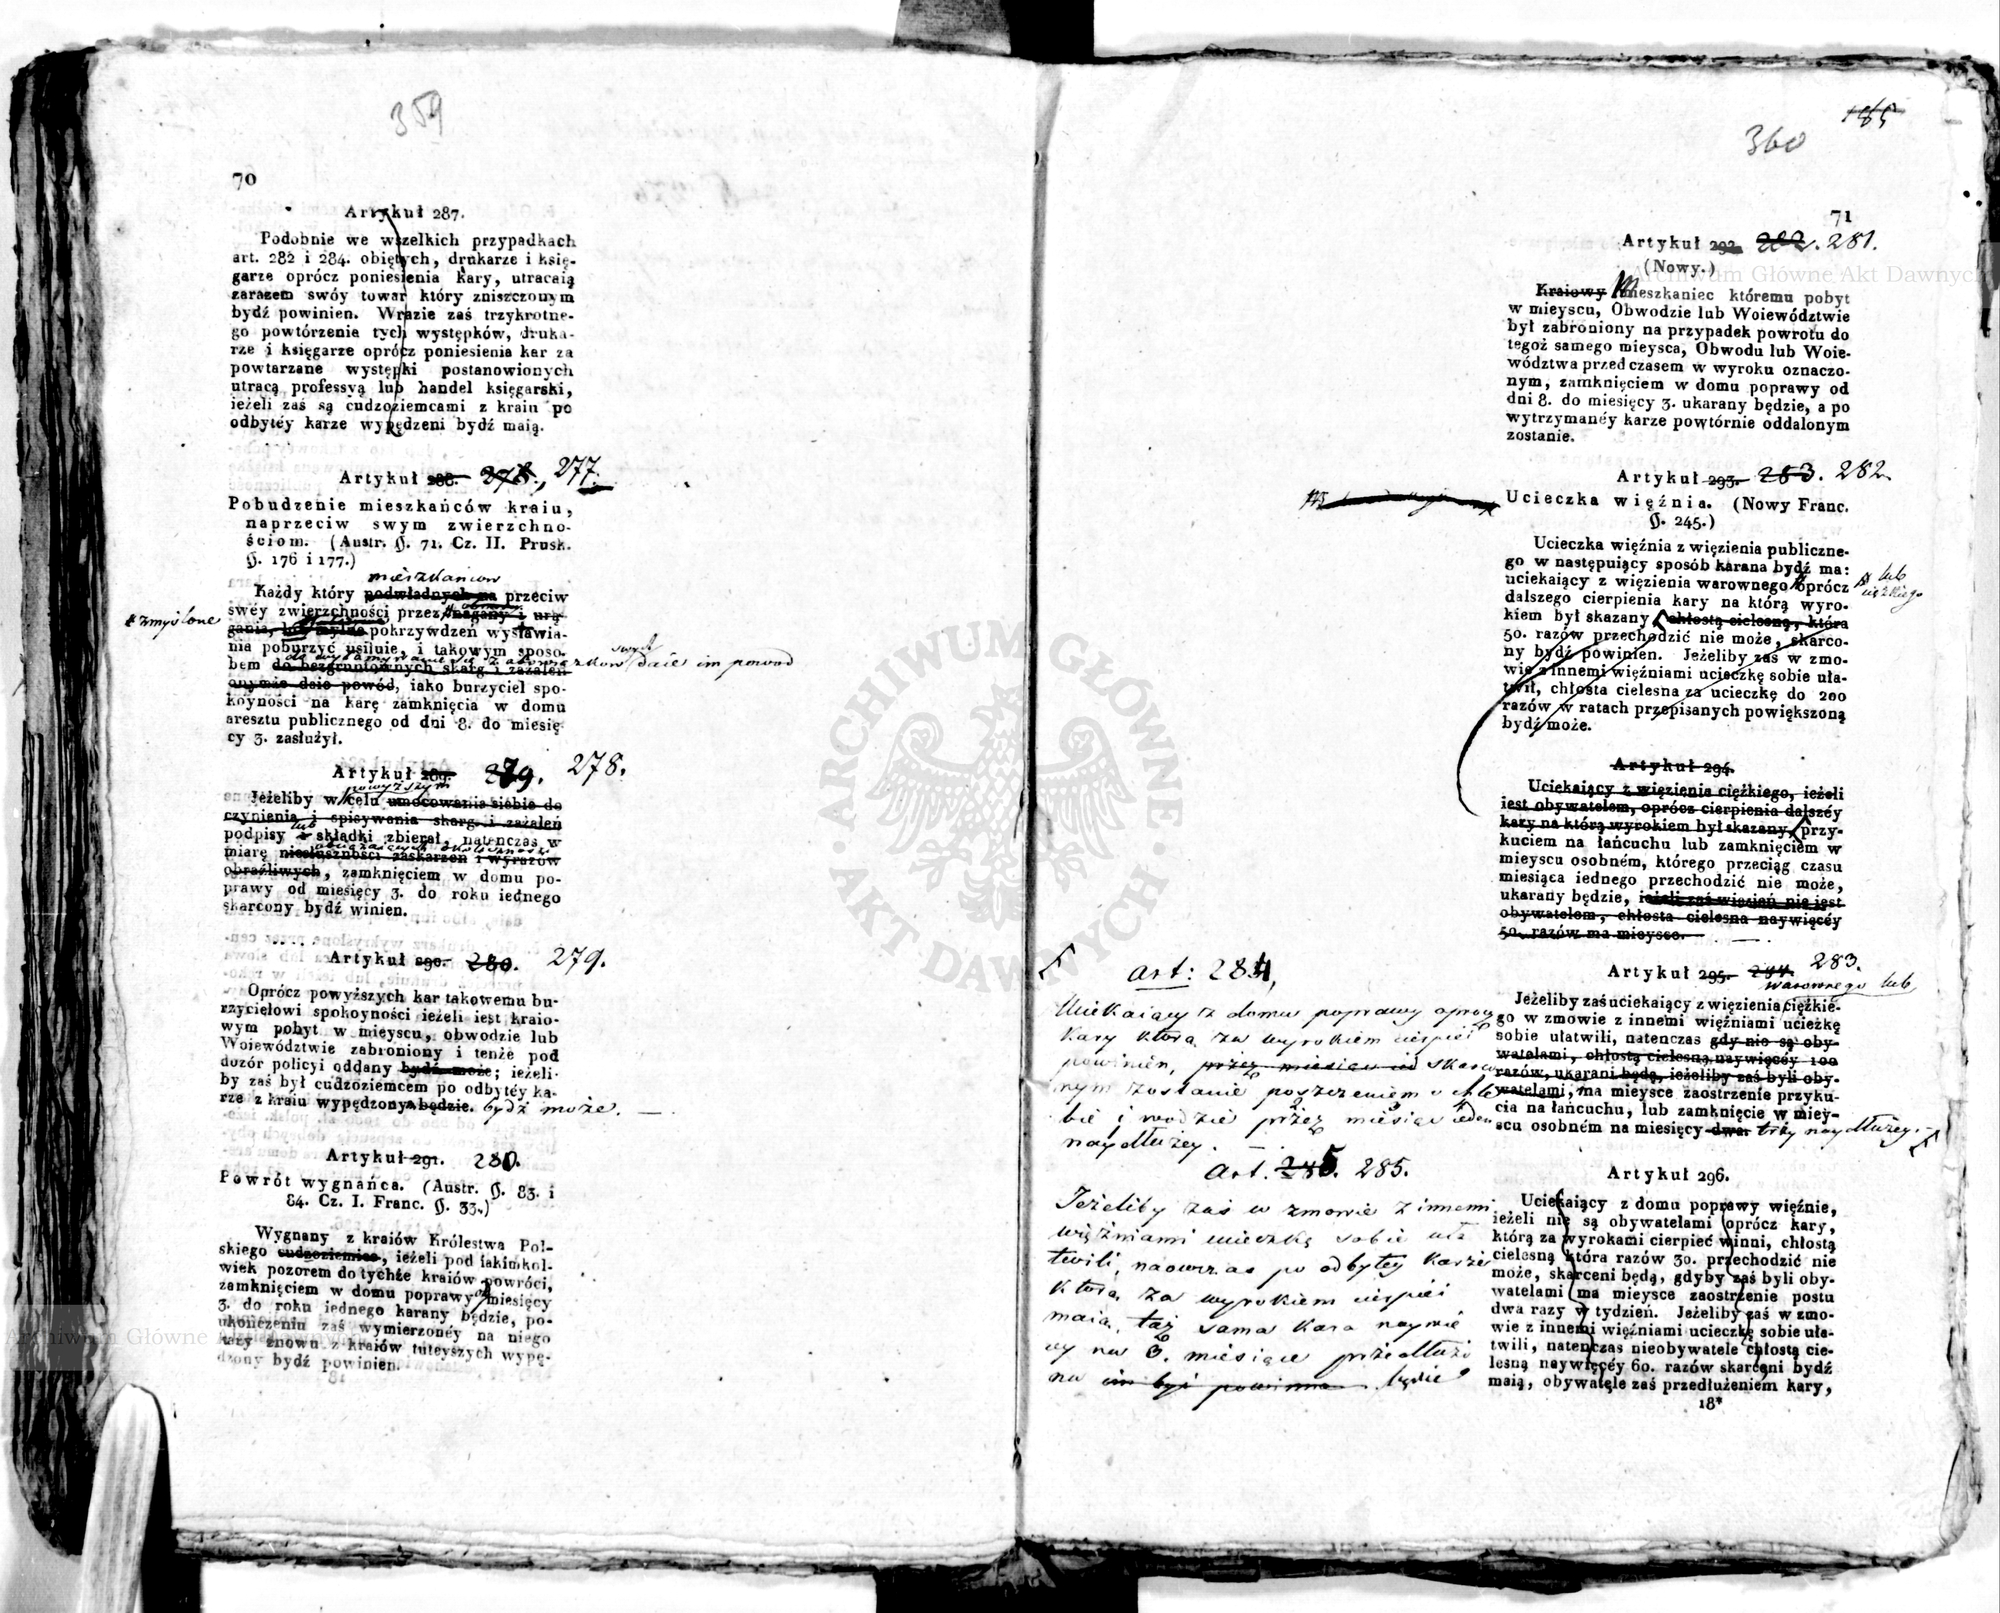 359
70
Artykuł 287.
Podobnie we wszelkich przypadkach
art. 282 i 284. obiętych, drukarze i księ-
garze oprócz poniesienia kary, utracaią
zarazem swóy towar który zniszczonym
bydź powinien. Wrazie zaś trzykrotne-
go powtórzenia tych występków, druka-
rze i księgarze oprócz poniesienia kar za
powtarzane występki postanowionych
utracą professyą lub handel księgarski,
ieżeli zaś są cudzoziemcami z kraiu po
odbytéy karze wypędzeni bydź maią.
Artykuł 288. 278., 277.
Pobudzenie mieszkańców kraiu,
naprzeciw swym zwierzchno-
ściom. (Austr. §. 71. Cz. II. Prusk.
§. 176 i 177.)
mieszkancow
Każdy który podwładnych na przeciw
swéy zwierzchności przez nagany i urą-
zmyślone
gania, lub mylne pokrzywdzeń wystawia-
nia poburzyć usiłuie, i takowym sposo-
swych
bem do bezgruntownych skarg i zażaleń
daie im powod
onymże daie powód, iako burzyciel spo-
koyności na karę zamknięcia w domu
aresztu publicznego od dni 8. do miesię-
cy 3. zasłużył.
Artykuł 289. 279. 278.
powyższym
Jeżeliby w celu umocowania siebie do
czynienia i spisywania skarg i zażaleń
lub
podpisy i składki zbierał, natenczas w
miarę niesłuszności zaskarzeń i wyrazów
obraźliwych, zamknięciem w domu po-
prawy od miesięcy 3. do roku iednego
skarcony bydź winien.
Artykuł 290. 280. 279.
Oprócz powyższych kar takowemu bu-
rzycielowi spokoyności ieżeli iest kraio-
wym pobyt w mieyscu, obwodzie lub
Woiewództwie zabroniony i tenże pod
dozór policyi oddany bydź może; ieżeli-
by zaś był cudzoziemcem po odbytéy ka-
rze z kraiu wypędzony będzie. bydź może.
Artykuł 291. 280.
Powrót wygnańca. (Austr. §. 83. i
84. Cz. I. Franc. §. 33.)
Wygnany z kraiów Królestwa Pol-
skiego cudzoziemiec, ieżeli pod iakimkol-
wiek pozorem do tychże kraiów powróci,
zamknięciem w domu poprawy od miesięcy
3. do roku iednego karany będzie, po-
ukończeniu zaś wymierzonéy na niego
kary znowu z kraiów tuteyszych wypę-
dzony bydź powinien.
185
360
71
Artykuł 292. 282. 281.
(Nowy.)
Kraiowy mieszkaniec któremu pobyt
w mieyscu, Obwodzie lub Woiewództwie
był zabroniony na przypadek powrotu do
tegoż samego mieysca, Obwodu lub Woie-
wództwa przed czasem w wyroku oznaczo-
nym, zamknięciem w domu poprawy od
dni 8. do miesięcy 3. ukarany będzie, a po
wytrzymanéy karze powtórnie oddalonym
zostanie.
Artykuł 293. 283. 282.
Ucieczka więźnia. (Nowy Franc.
§. 245.)
Ucieczka więźnia z więzienia publiczne-
go w następuiący sposób karana bydź ma:
uciekaiący z więzienia warownego oprócz
lub
ciężkiego
dalszego cierpienia kary na którą wyro-
kiem był skazany, chłostą cielesną, która
50. razów przechodzić nie może, skarco-
ny bydź powinien. Jeżeliby zaś w zmo-
wie z innemi więźniami ucieczkę sobie uła-
twił, chłosta cielesna za ucieczkę do 200
razów w ratach przepisanych powiększoną
bydź może.
Artykuł 294.
Uciekaiący z więzienia ciężkiego, ieżeli
iest obywatelem, oprócz cierpienia dalszéy
kary na którą wyrokiem był skazany, przy-
kuciem na łańcuchu lub zamknięciem w
mieyscu osobném, którego przeciąg czasu
miesiąca iednego przechodzić nie może,
ukarany będzie, ieżeli zaś więzień nie iest
obywatelem, chłosta cielesna naywięcéy
50. razów ma mieysce.
Artykuł 295. 284. 283.
warownego lub
Jeżeliby zaś uciekaiący z więzienia ciężkie-
go w zmowie z innemi więźniami ucieżkę
sobie ułatwili, natenczas gdy nie są oby-
watelami, chłostą cielesną naywięcéy 100
razów, ukarani będą, ieżeliby zaś byli oby-
watelami, ma mieysce zaostrzenie przyku-
cia na łańcuchu, lub zamknięcie w miey-
scu osobném na miesięcy dwa. trzy naydłużey.
Artykuł 296.
Uciekaiący z domu poprawy więźnie,
ieżeli nie są obywatelami oprócz kary,
którą za wyrokami cierpieć winni, chłostą
cielesną która razów 30. przechodzić nie
może, skarceni będą, gdyby zaś byli oby-
watelami ma mieysce zaostrzenie postu
dwa razy w tydzień. Jeżeliby zaś w zmo-
wie z innemi więźniami ucieczkę sobie uła-
twili, natenczas nieobywatele chłostą cie-
lesną naywięcéy 60. razów skarceni bydź
maią, obywatele zaś przedłużeniem kary,
18*
Art: 284,
Uciekaiący z domu poprawy oprócz
kary którą za wyrokiem cierpieć
powinien, przez miesiąc skarco
nym zostanie poszczeniem o chle
bie i wodzie przez miesiąc ieden
naydłużey.
Art. 285. 285.
Jeżeliby zaś w zmowie z innemi
więźniami ucieczkę sobie uła
twili, naówczas po odbytey karze
którą za wyrokiem cierpieć
maią, taż sama kara naywię
cy na 3. miesiące przedłużo
na być powinna będzie
ARCHIWUM GŁÓWNE AKT DAWNYCH
Archiwum Główne Akt Dawnych
Archiwum Główne